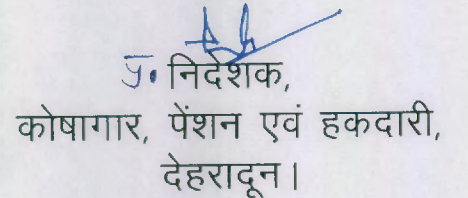 निदेशक,
कोषागार, पेंशन एवं हकदारी,
देहरादून।